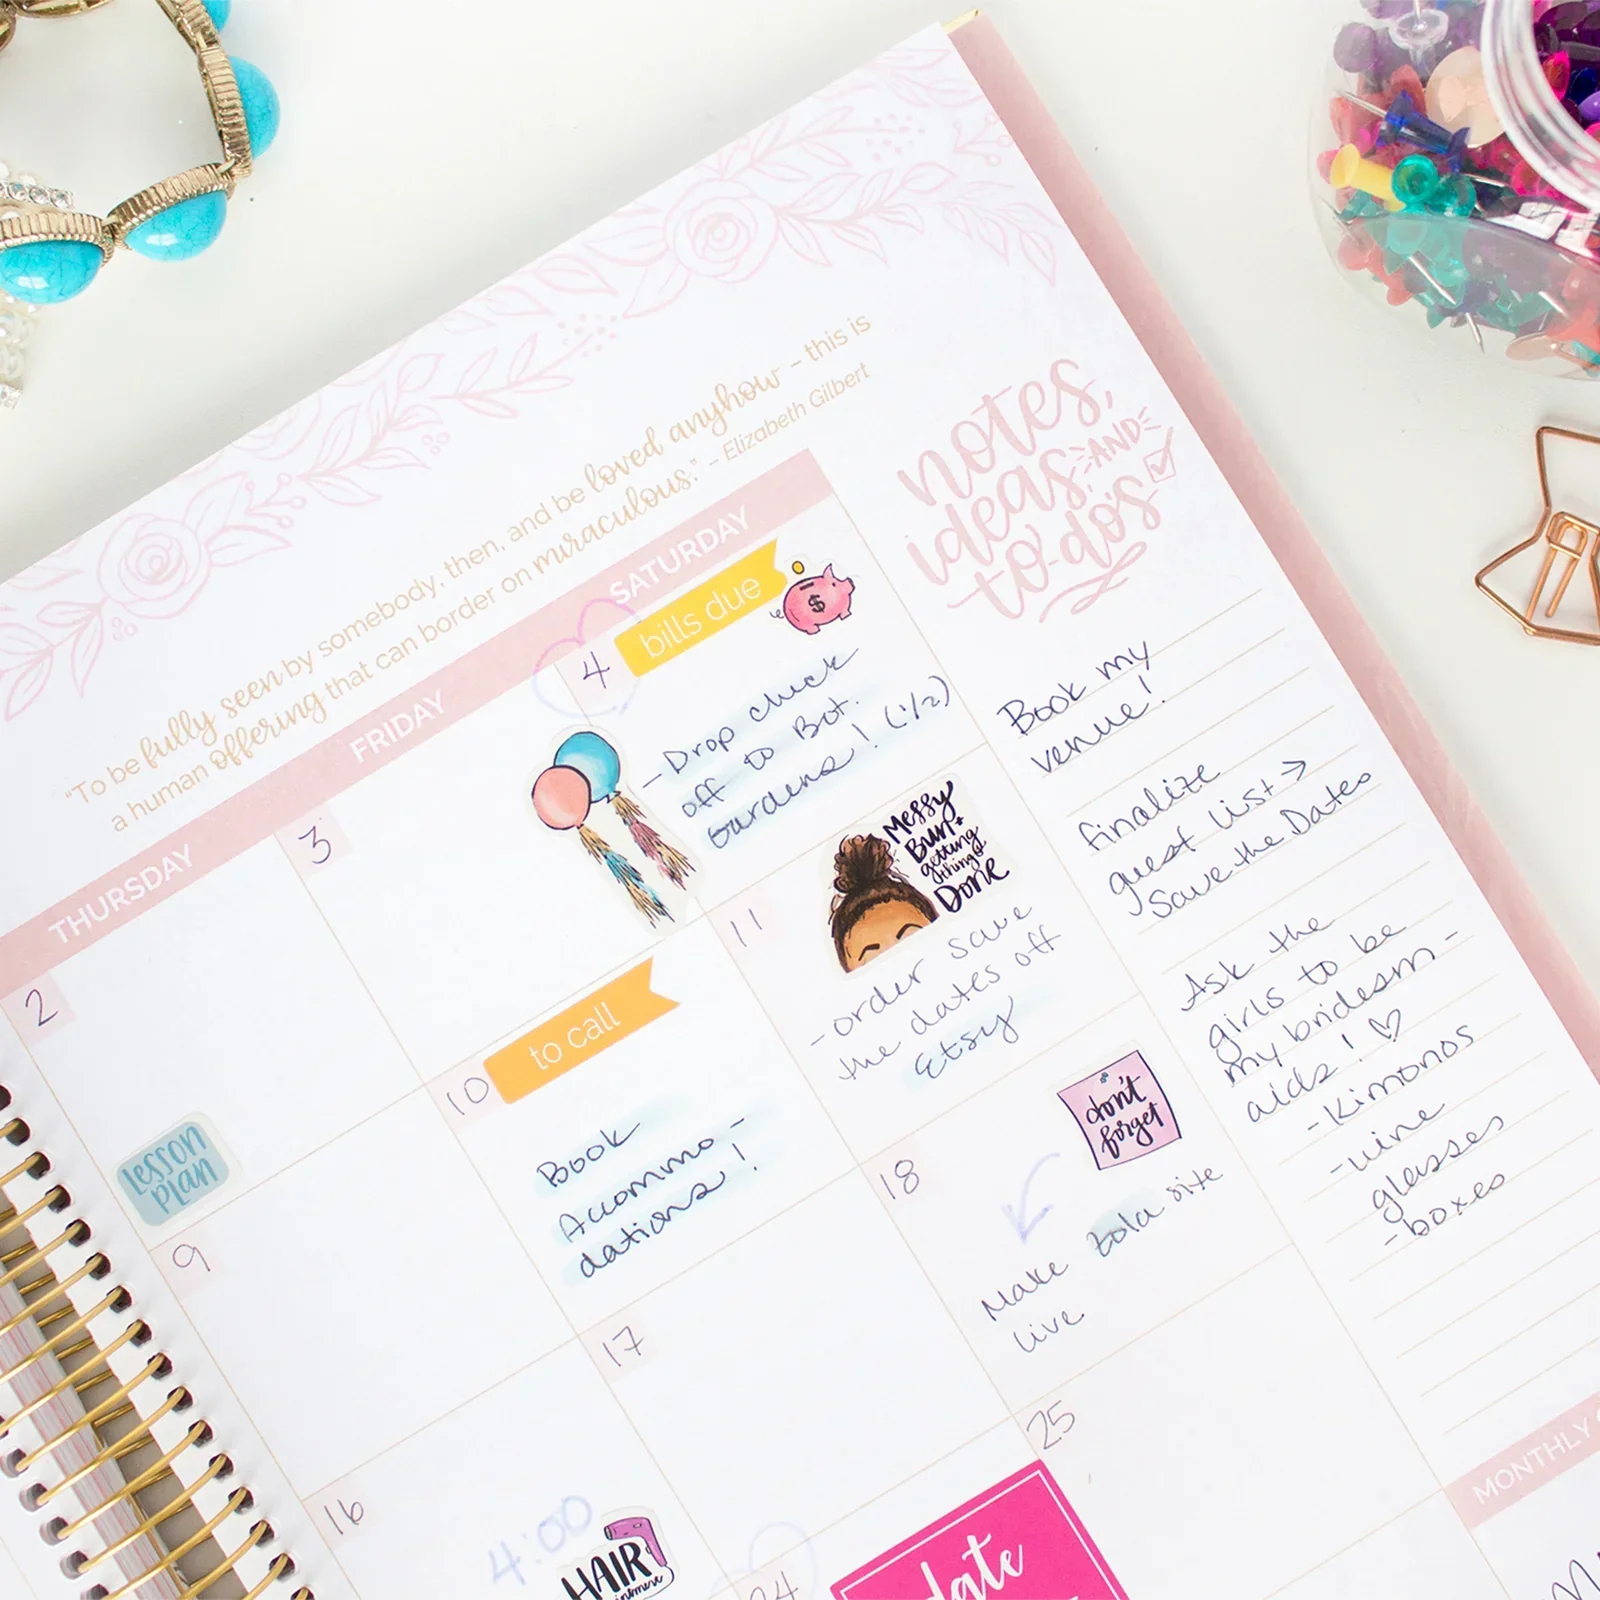 "To be fully seen by somebody, then, and be loved anyhow - this is
a human offering that can border on miraculous." - Elizabeth Gilbert
THURSDAY
FRIDAY
SATURDAY
2
lesson
plan
3
4
bills due
$
-Drop check
off to Bot.
Gardens! (1/2)
9
10
to call
Book
Accommo-
dations!
11
Messy
Bun +
getting
things
Done
-order save
the dates off
Etsy
16
4:00
HAIR
17
18
don't
forget
Make Zola site
live
24
date
25
notes,
ideas, AND
to-do's
Book my
venue!
finalize
guest list →
Save the Dates
Ask the
girls to be
my bridesm-
aids! ♡
-Kimonos
-wine
glasses
-boxes
MONTHLY